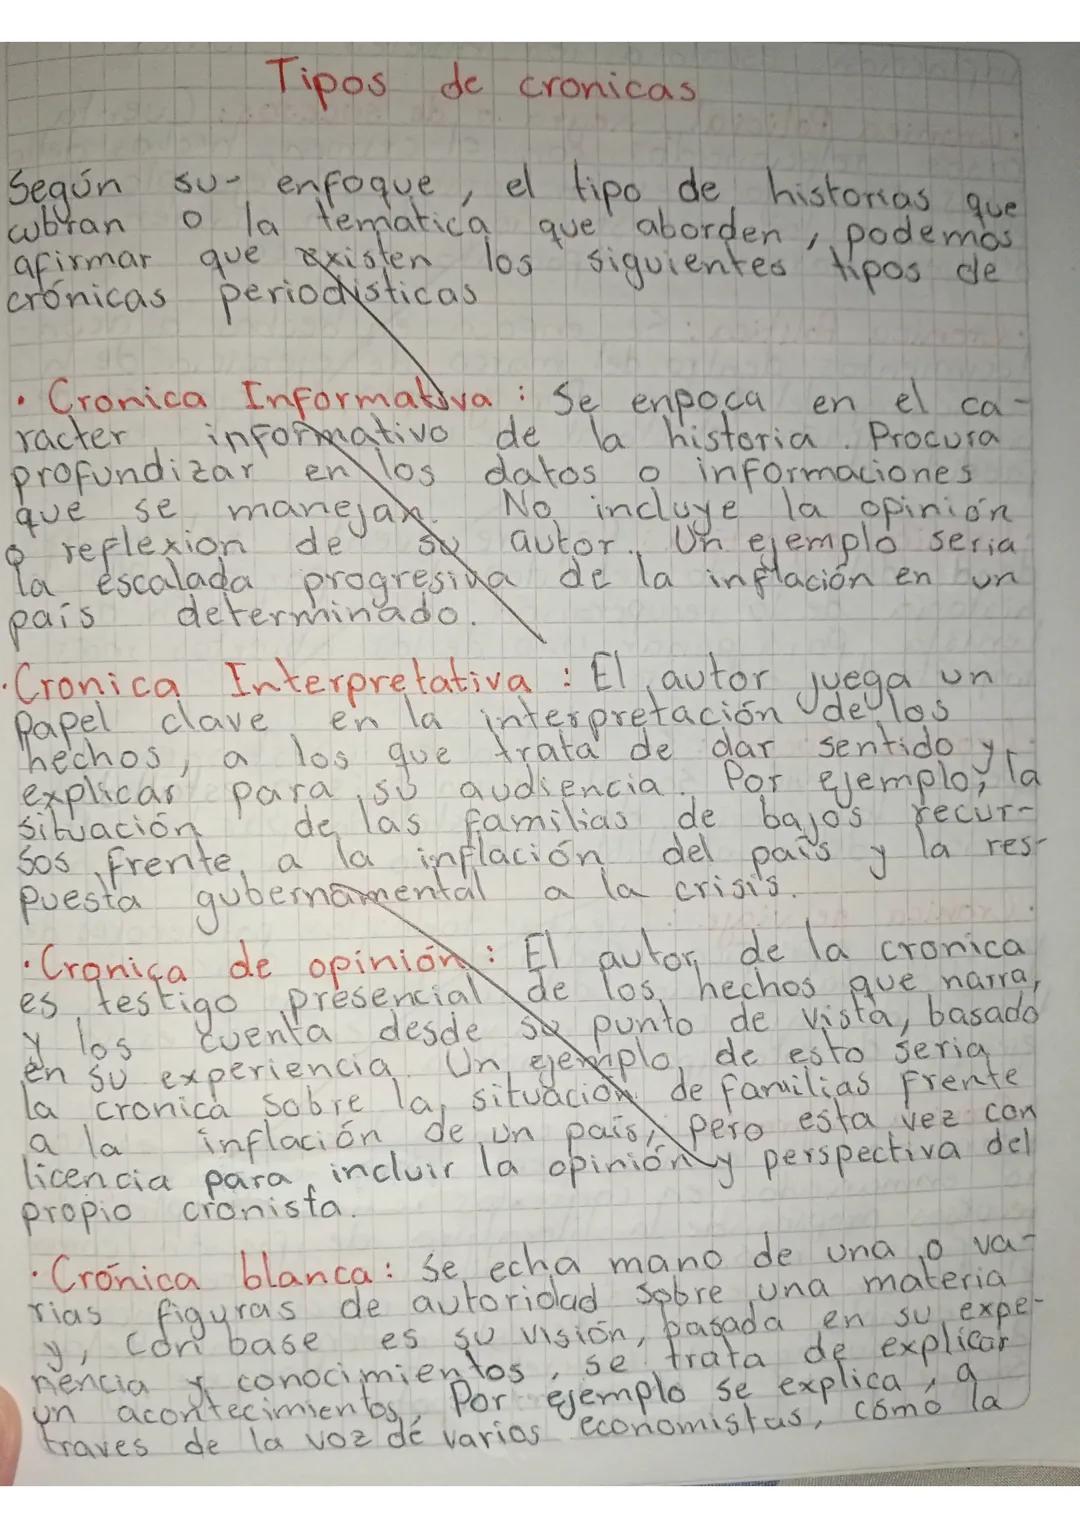 Tipos de cronicas
Según su- enfoque, el tipo de historias que
cubran o la tematica que aborden, podemos
afirmar que existen los siguientes tipos de
crónicas periodisticas
· Cronica Informativa : Se enpoca en el ca-
racter informativo de la historia. Procura
profundizar en los datos o informaciones
que se manejan. No incluye la opinión
o reflexion de su autor. Un ejemplo seria
la escalada progresiva de la inflación en un
país determinado.
· Cronica Interpretativa : El autor juega un
Papel clave en la interpretación de los
hechos, a los que trata de dar sentido y
explicar para su audiencia. Por ejemplo, la
situación de las familias de bajos recur-
sos frente a la inflación del país y la res-
puesta gubernamental a la crisis.
· Cronica de opinión : El autor de la cronica
es testigo presencial de los hechos que narra,
y los cuenta desde su punto de vista, basado
en su experiencia. Un ejemplo de esto seria
la cronica sobre la situación de familias frente
a la inflación de un país, pero esta vez con
licencia para incluir la opinión y perspectiva del
propio cronista.
· Crónica blanca: Se echa mano de una o va-
rias figuras de autoridad sobre una materia
y, con base es su visión, basada en su expe-
riencia y conocimientos, se trata de explicar
un acontecimientos, Por ejemplo se explica, a
traves de la voz de varios economistas, cómo la